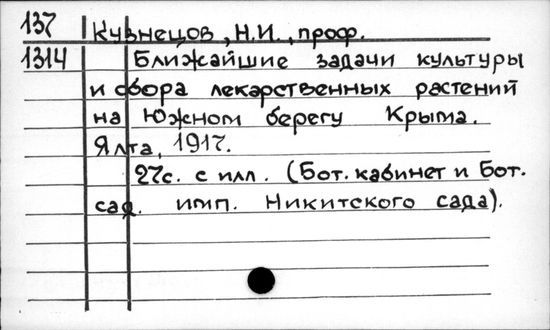 137 Кузнецов, Н.И., проф.
1314 Ближайшие задачи культуры
и сбора лекарственных растений
на Южном берегу Крыма.
Ялта, 1917.
27с. с илл. (Бот. кабинет и Бот.
сад. имп. Никитского сада).